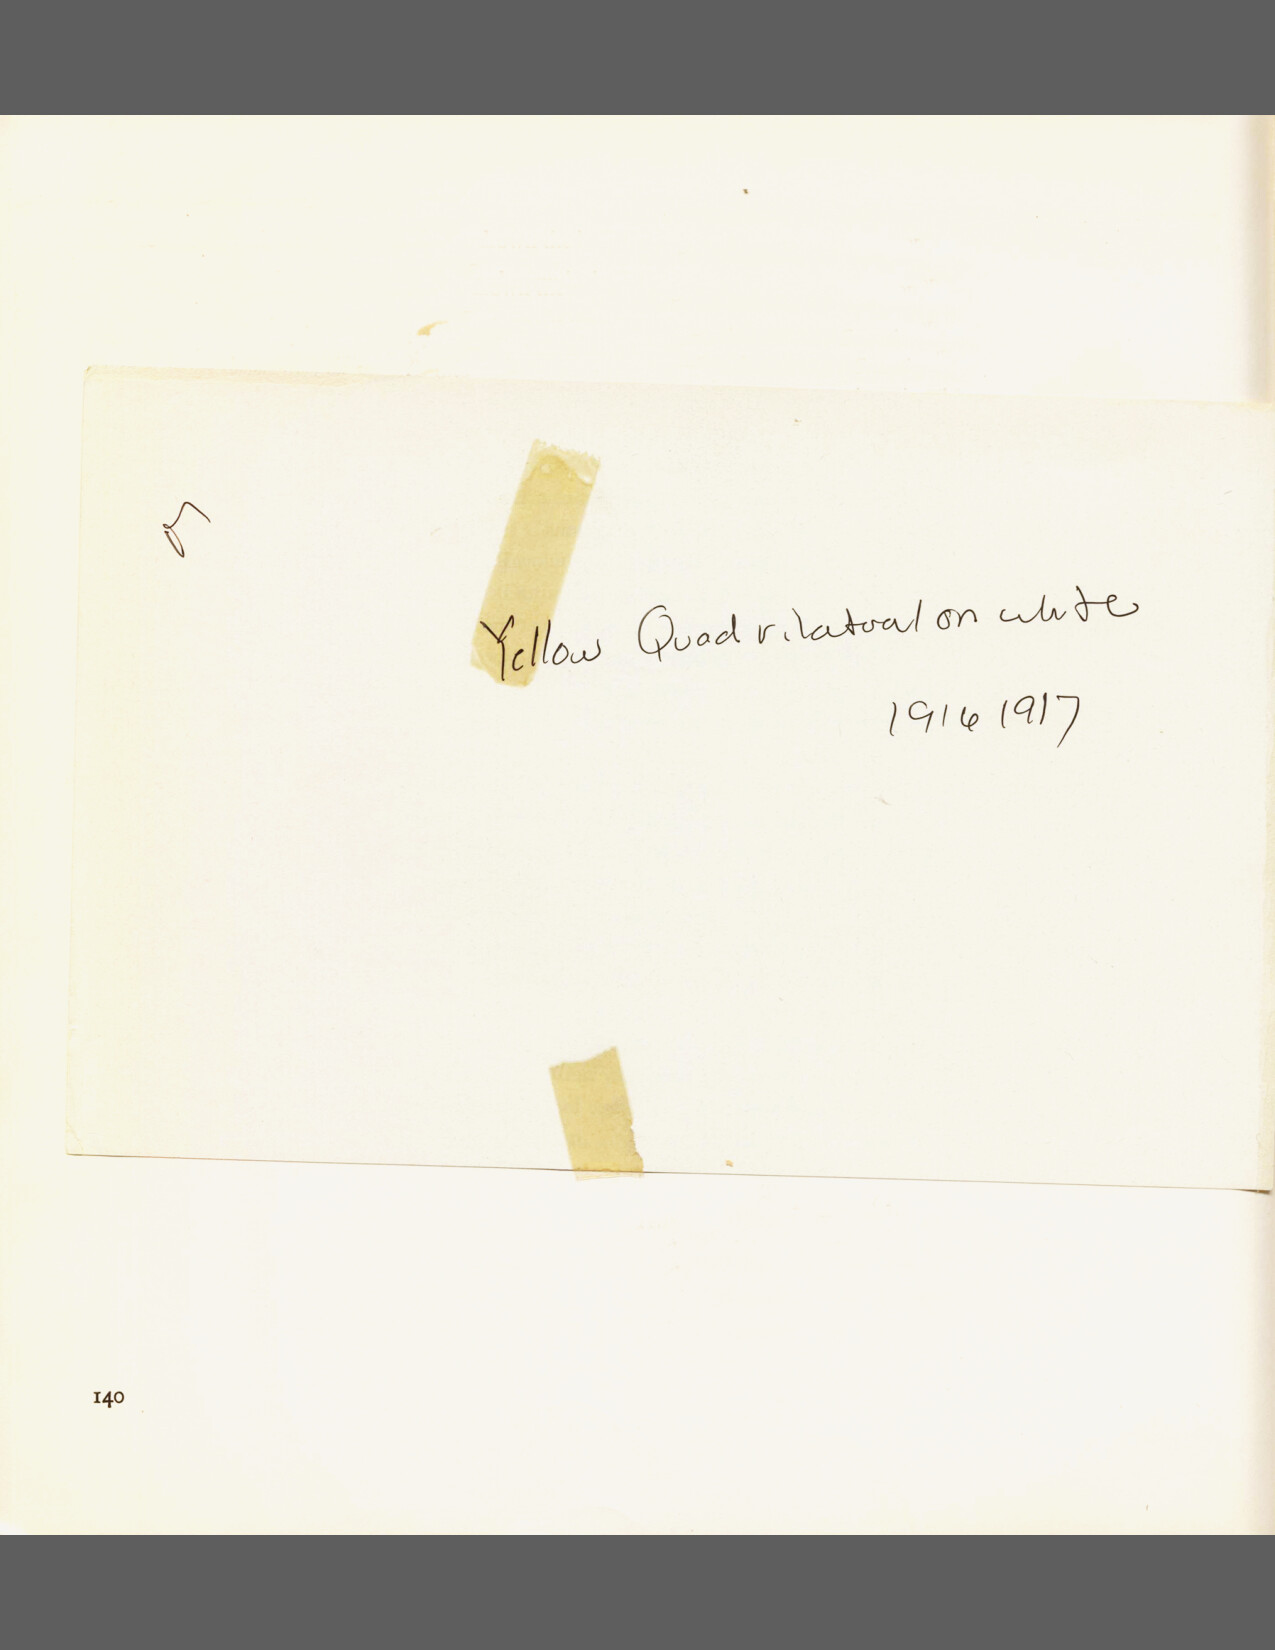 Yellow Quadrilateral on white
1916 1917
140